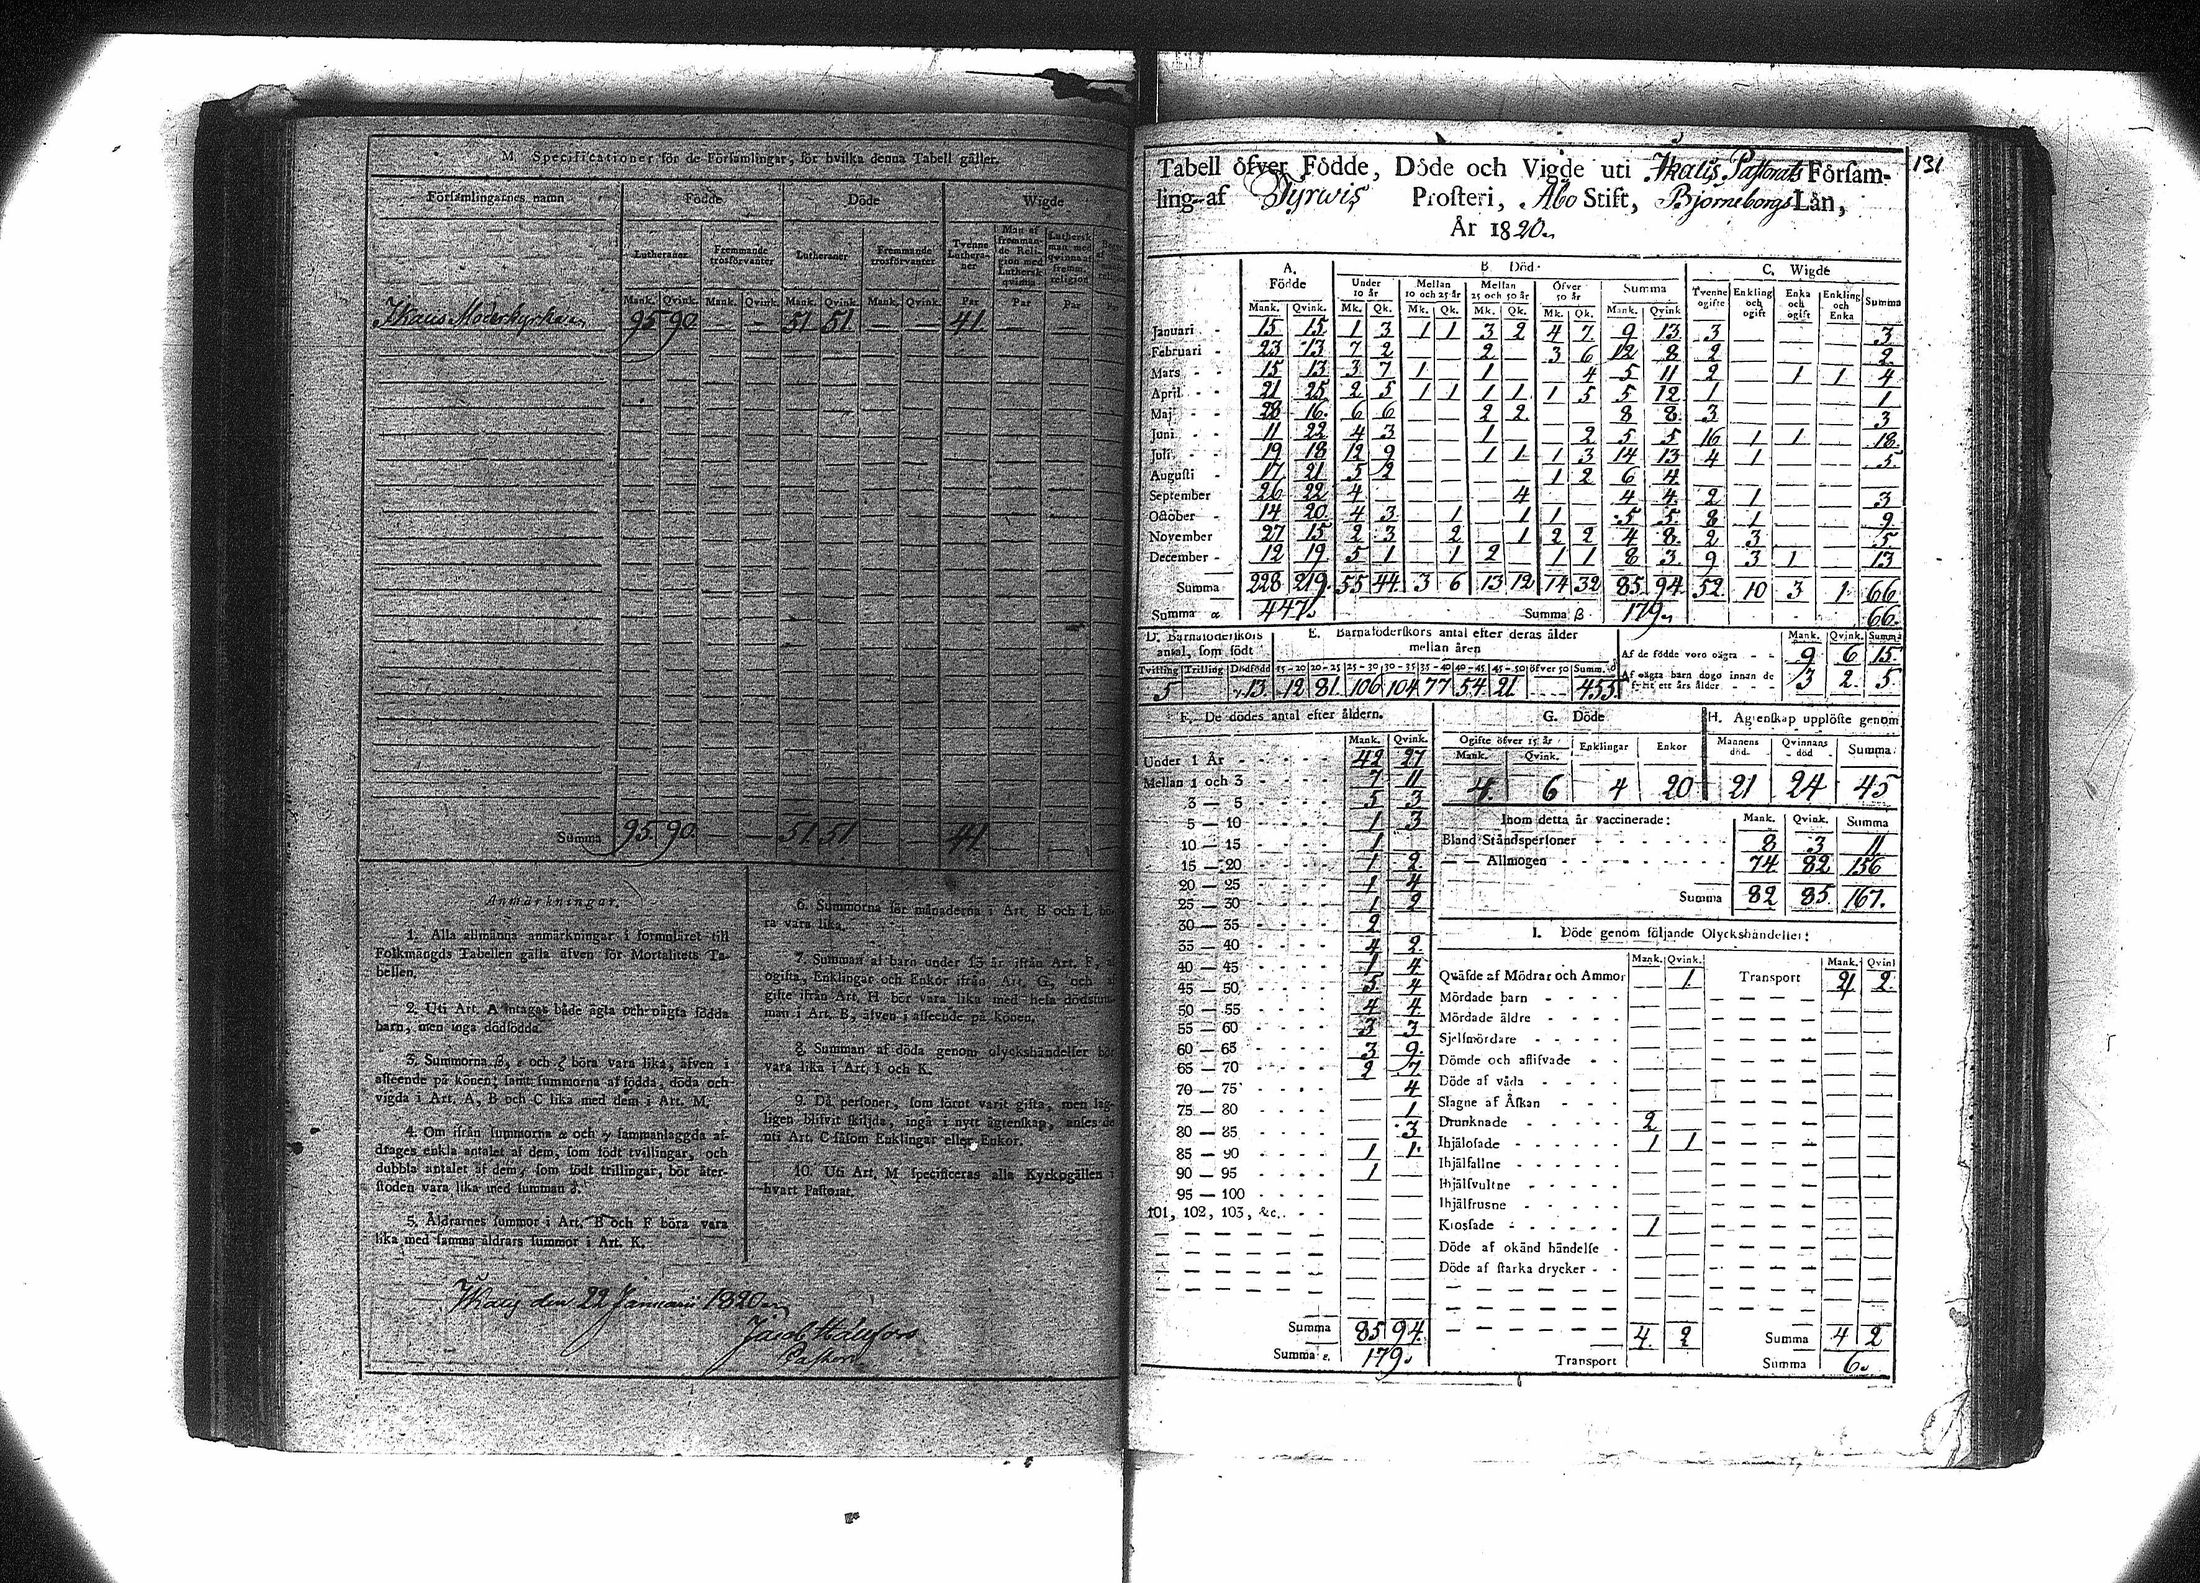 M Specificationer för de Församlingar, för hvilka denna Tabell gäller.
Församlingarnes namn Födde Döde Wigde
Lutheraner Fremmande trosförvanter Lutheraner Fremmande trosförvanter Tvenne Lutheraner Man af fremmande Religion med Luthersk qvinna Luthersk man med qvinna af fremm. religion
Mank. Qvink. Mank. Qvink. Mank. Qvink. Mank. Qvink. Par Par Par
Ikalis Moderkyrkan 95 90 — — 51 51 — — 41 — —
Summa 95 90 — — 51 51 — — 41
Anmärkningar.
1. Alla allmänna anmärkningar i formuläret till
Folkmängds Tabellen gälla äfven för Mortalitets Ta-
bellen.
2. Uti Art. A intagas både ägta och oägta födda
barn, men inga dödfödda.
3. Summorna ß, ε och ζ böra vara lika, äfven i
afseende på könen; samt summorna af födda, döda och
vigda i Art. A, B och C lika med dem i Art. M.
4. Om ifrån summorna α och γ sammanlaggda af-
drages enkla antalet af dem, som födt tvillingar, och
dubbla antalet af dem, som födt trillingar, bör åter-
stoden vara lika med summan δ.
5. Åldrarnes summor i Art. B och F böra vara
lika med samma åldrars summor i Art. K.
6. Summorna för månaderna i Art. B och L bö-
ra vara lika.
7. Summan af barn under 15 år ifrån Art. F, a
ogifta, Enklingar och Enkor ifrån Art. G, och a
gifte ifrån Art. H bör vara lika med hela dödssum
man i Art. B, äfven i afseende på Könen.
8. Summan af döda genom olyckshändelser bör
vara lika i Art. I och K.
9. Då personer, som förut varit gifta, men lag-
ligen blifvit skiljda, ingå i nytt ägtenskap, anses de
uti Art. C såsom Enklingar eller Enkor.
10. Uti Art. M specificeras alla Kyrkogällen i
hvart Pastorat.
Ikalis den 22 Januarii 1820
Jacob
Pastor
131
Tabell öfver Födde, Döde och Vigde uti Ikalis Pastorats Församl-
ling af Tyrwis Prosteri, Åbo Stift, Björneborgs Län,
År 1820.
A. Födde B Död C. Wigde
Under 10 år Mellan 10 och 25 år Mellan 25 och 50 år Öfver 50 år Summa Tvenne ogifte Enkling och ogift Enka och ogift Enkling och Enka Summa
Mank. Qvink. Mk. Qk. Mk. Qk. Mk. Qk. Mk. Qk. Mank. Qvink
Januari 15 15 1 3 1 1 3 2 4 7 9 13 3 — — — 3
Februari 23 13 7 2 — — 2 — 3 6 12 8 2 — — — 2
Mars 15 13 3 7 1 — 1 — — 4 5 11 2 — 1 1 4
April 21 25 2 5 1 1 1 1 1 5 5 12 1 — — — 1
Maj 28 16 6 6 — — 2 2 — — 8 8 3 — — — 3
Juni 11 22 4 3 — — 1 — — 2 5 5 16 1 1 — 18
Juli 19 18 12 9 — — 1 1 1 3 14 13 4 1 — — 5
Augusti 17 21 5 2 — — — — 1 2 6 4 — — — —
September 26 22 4 — — — — 4 — — 4 4 2 1 — — 3
October 14 20 4 3 — 1 — 1 1 — 5 5 8 1 — — 9
November 27 15 2 3 — 2 — 1 2 2 4 8 2 3 — — 5
December 12 19 5 1 — 1 2 — 1 1 8 3 9 3 1 — 13
Summa 228 219 55 44 3 6 13 12 14 32 85 94 52 10 3 1 66
Summa α 447. Summa ß 179. 66.
D. Barnaföderskors antal, som födt E. Barnaföderskors antal efter deras ålder mellan åren Mank. Qvink. Summa
Tvilling Trilling Dödfödd 15-20 20-25 25-30 30-35 35-40 40-45 45-50 öfver 50 Summ. δ
5 γ 13 12 81 106 104 77 54 21 — 455
Af de födde voro oägta 9 6 15
Af oägta barn dogo innan de fyllt ett års ålder 3 2 5
F. De dödes antal efter åldern.
Mank. Qvink.
Under 1 År 42 27
Mellan 1 och 3 7 11
3 — 5 5 3
5 — 10 1 3
10 — 15 1 —
15 — 20 1 2
20 — 25 1 4
25 — 30 1 2
30 — 35 2 —
35 — 40 4 2
40 — 45 1 4
45 — 50 5 4
50 — 55 4 4
55 — 60 3 3
60 — 65 3 9
65 — 70 2 7
70 — 75 — 4
75 — 80 — 1
80 — 85 — 3
85 — 90 1 1
90 — 95 1 —
95 — 100
101, 102, 103, &c.
Summa 85 94
Summa ε. 179.
G. Döde
Ogifte öfver 15 år Enklingar Enkor
Mank. Qvink.
4 6 4 20
H. Ägtenskap upplöste genom
Mannens död Qvinnans död Summa
21 24 45
Inom detta år vaccinerade: Mank. Qvink. Summa
Bland Ståndspersoner 8 3 11
— — Allmogen 74 82 156
Summa 82 85 167.
I. Döde genom följande Olyckshändelser:
Mank. Qvink. Mank. Qvink
Qväfde af Mödrar och Ammor — 1 Transport 2
Mördade barn
Mördade äldre
Sjelfmördare
Dömde och aflifvade
Döde af våda
Slagne af Åskan
Drunknade 2 —
Ihjälosade 1 1
Ihjälfallne
Ihjälsvultne
Ihjälfrusne
Krossade 1 —
Döde af okänd händelse
Döde af starka drycker
4 2 Summa 4 2
Transport Summa 6.